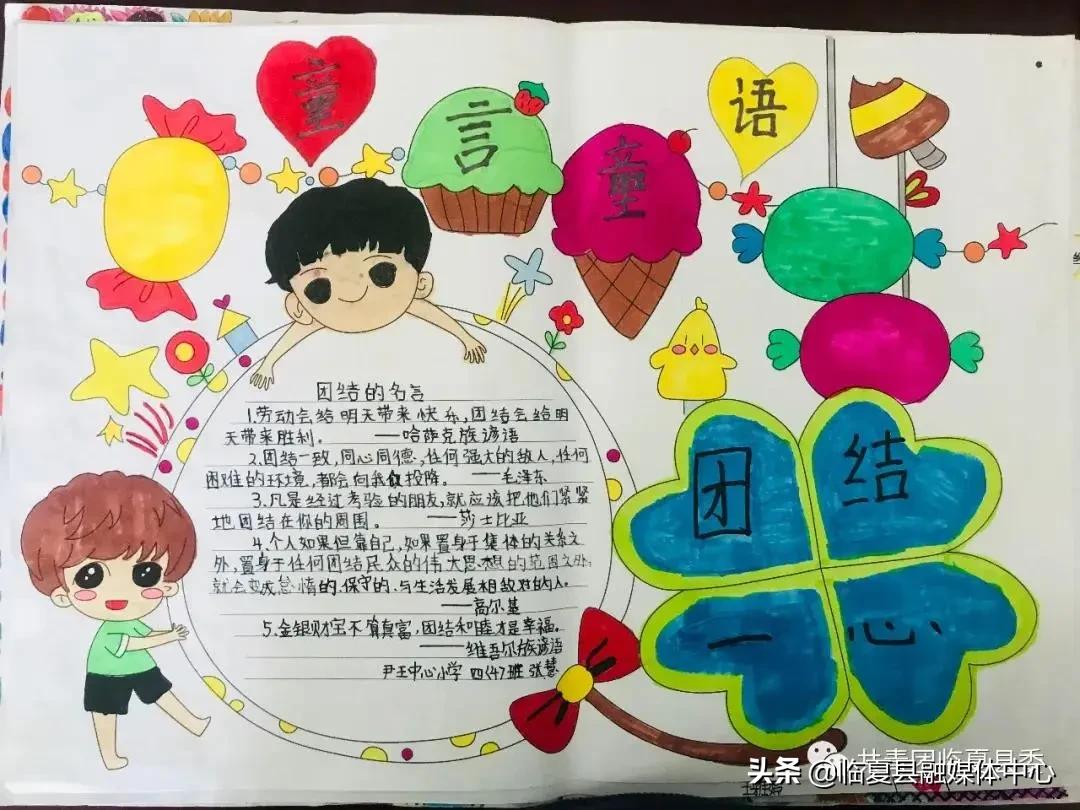 童言童语
团结的名言
1.劳动会给明天带来快乐,团结会给明
天带来胜利。 ——哈萨克族谚语
2.团结一致,同心同德,任何强大的敌人,任何
困难的环境,都会向我们投降。 ——毛泽东
3.凡是经过考验的朋友,就应该把他们紧紧
地团结在你的周围。 ——莎士比亚
4.个人如果但靠自己,如果置身于集体的关系之
外,置身于任何团结民众的伟大思想的范围之外,
就会变成怠惰的、保守的、与生活发展相敌对的人。
——高尔基
5.金银财宝不算真富,团结和睦才是幸福。
——维吾尔族谚语
尹王中心小学 四(4)班 张慧
团结
一心
共青团临夏县委
头条 @临夏县融媒体中心